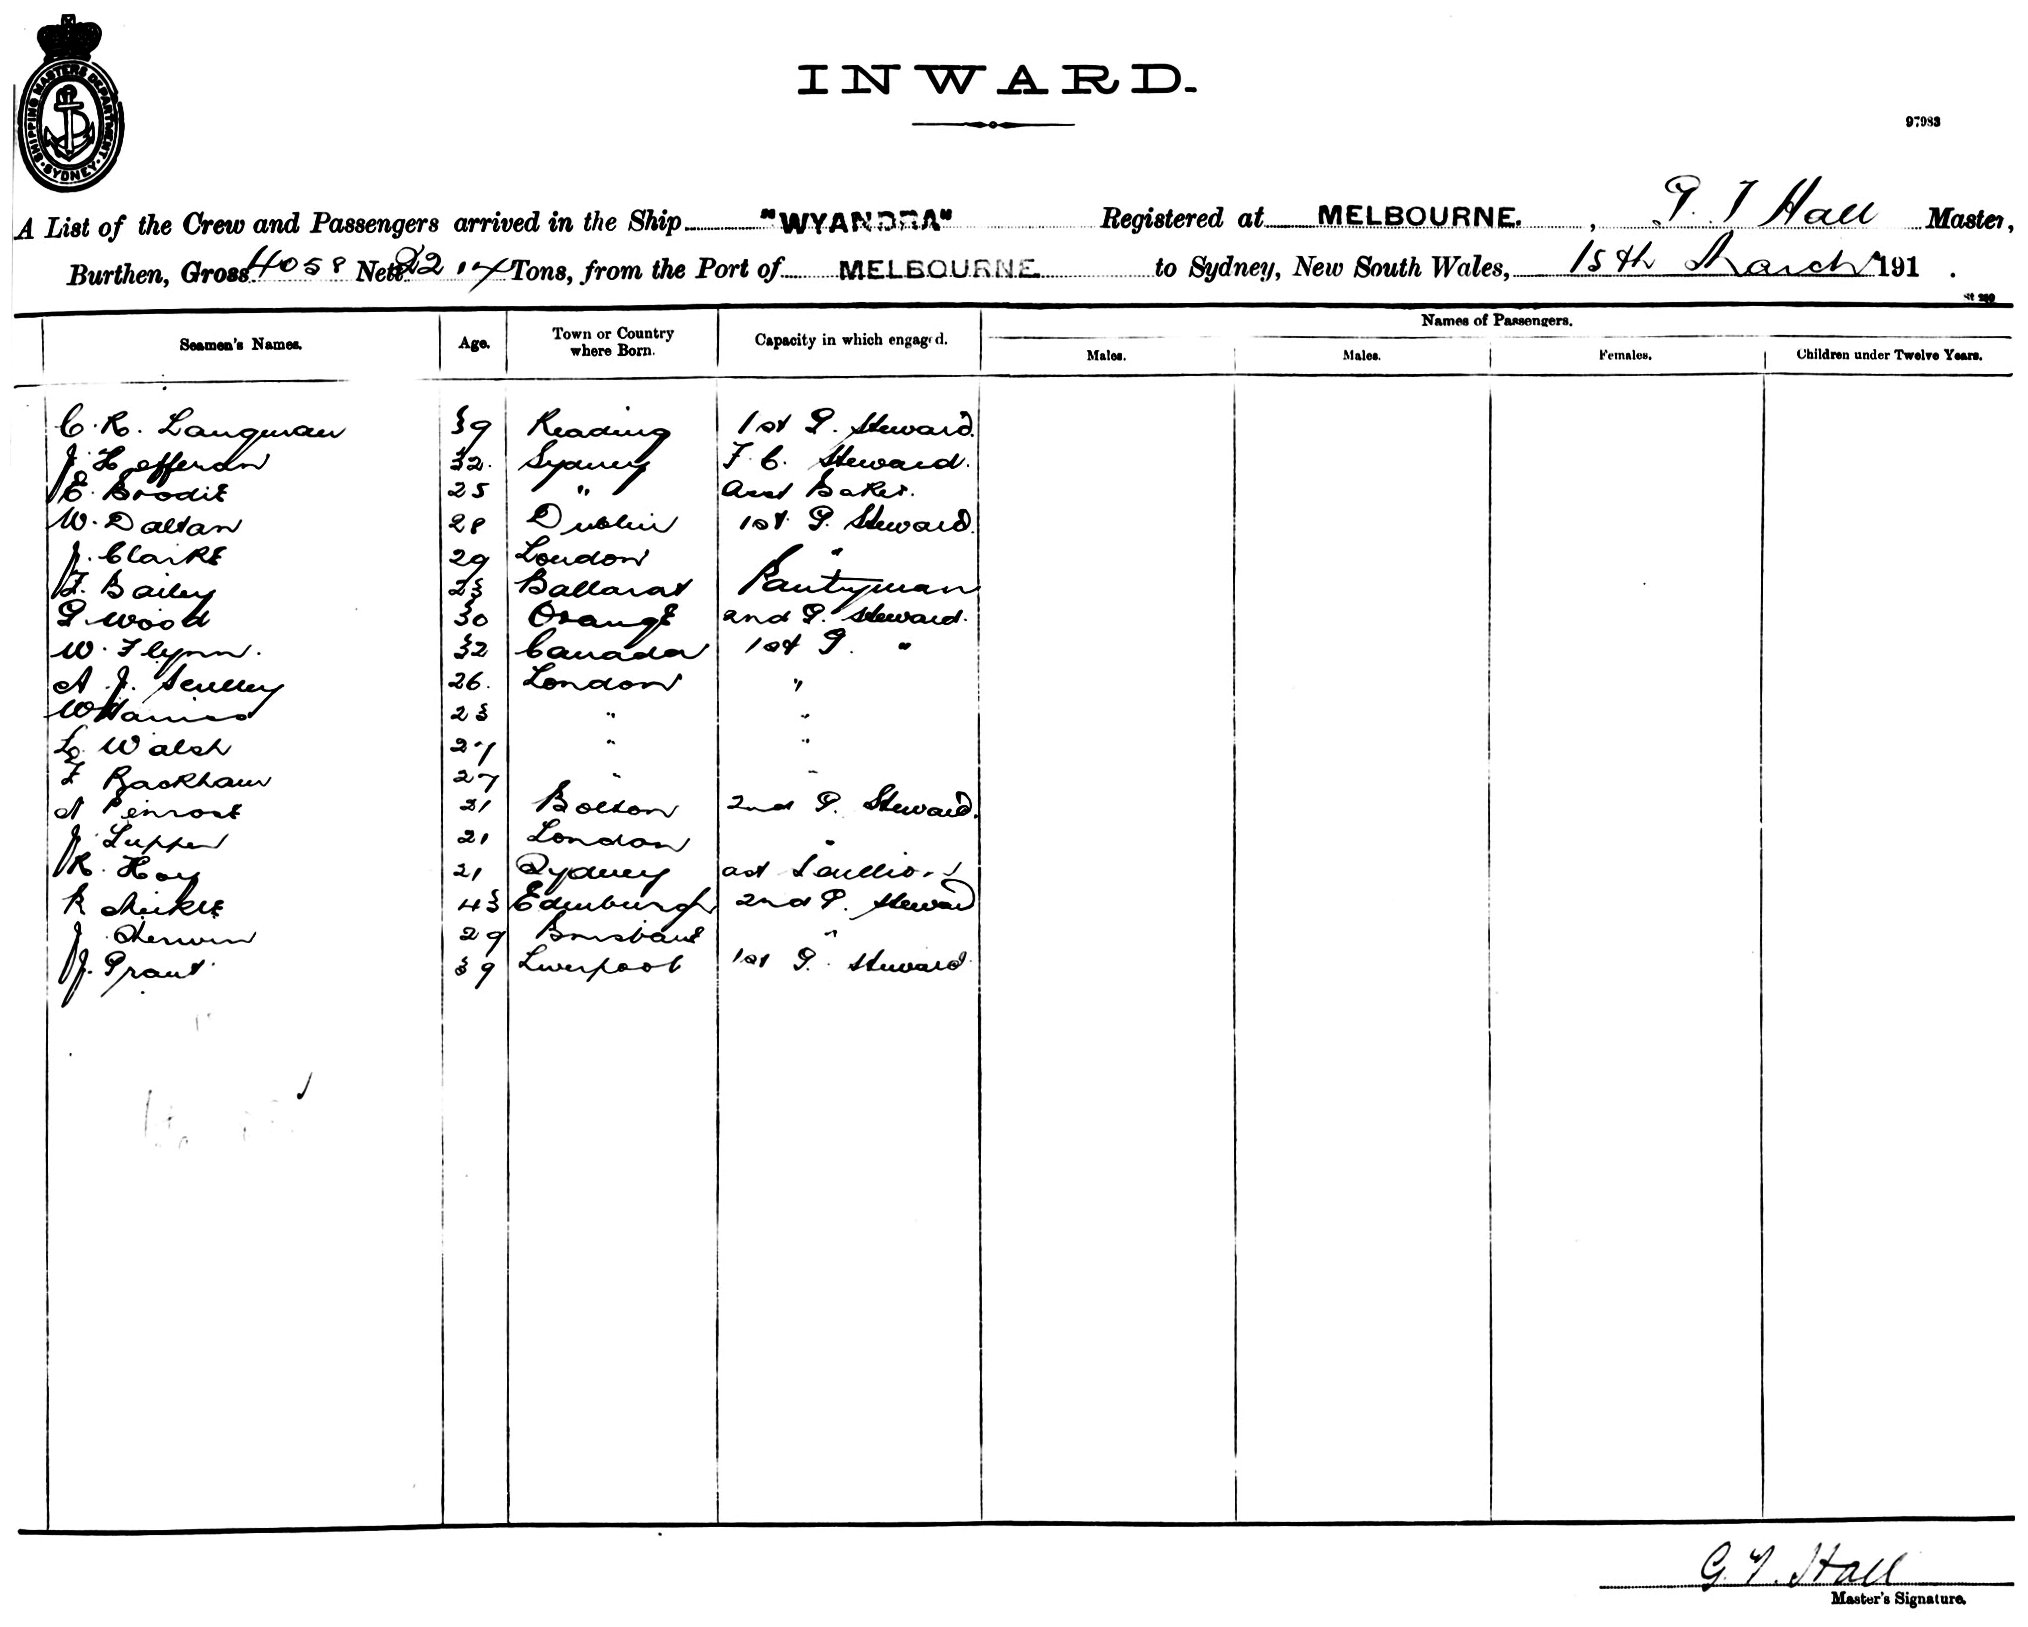 SHIPPING MASTERS DEPARTMENT · SYDNEY ·
INWARD.
97983
A List of the Crew and Passengers arrived in the Ship "WYANDRA" Registered at MELBOURNE. , G. T Hall Master,
Burthen, Gross 4058 Nett 2217 Tons, from the Port of MELBOURNE to Sydney, New South Wales, 15th March 191 .
Seamen's Names. Age. Town or Country where Born. Capacity in which engaged. Names of Passengers.
Males. Males. Females. Children under Twelve Years.
C. R. Langman 39 Reading 1st P. Steward.
J. Hefferan 32. Sydney F. C. Steward.
E. Brodie 25 " Asst Baker.
W. Daltan 28 Dublin 1st P. Steward
J. Clarke 29 London "
F. Bailey 23 Ballarat Pantryman
G. Wood 30 Orange 2nd P. Steward.
W. Flynn. 32 Canada 1st P. "
A. J. Sculley 26. London "
W Harris 23 " "
L. Walsh 27 " "
F Rackham 27 " "
A Penrose 21 Bolton 2nd P. Steward.
J. Lupper 21 London "
R. Hoy 21 Sydney ast Scullion
R Meikle 43 Edinburgh 2nd P. Steward
J. Sherwin 29 Brisbane "
J. Grant 39 Liverpool 1st P. Steward
G. T. Hall
Master's Signature.